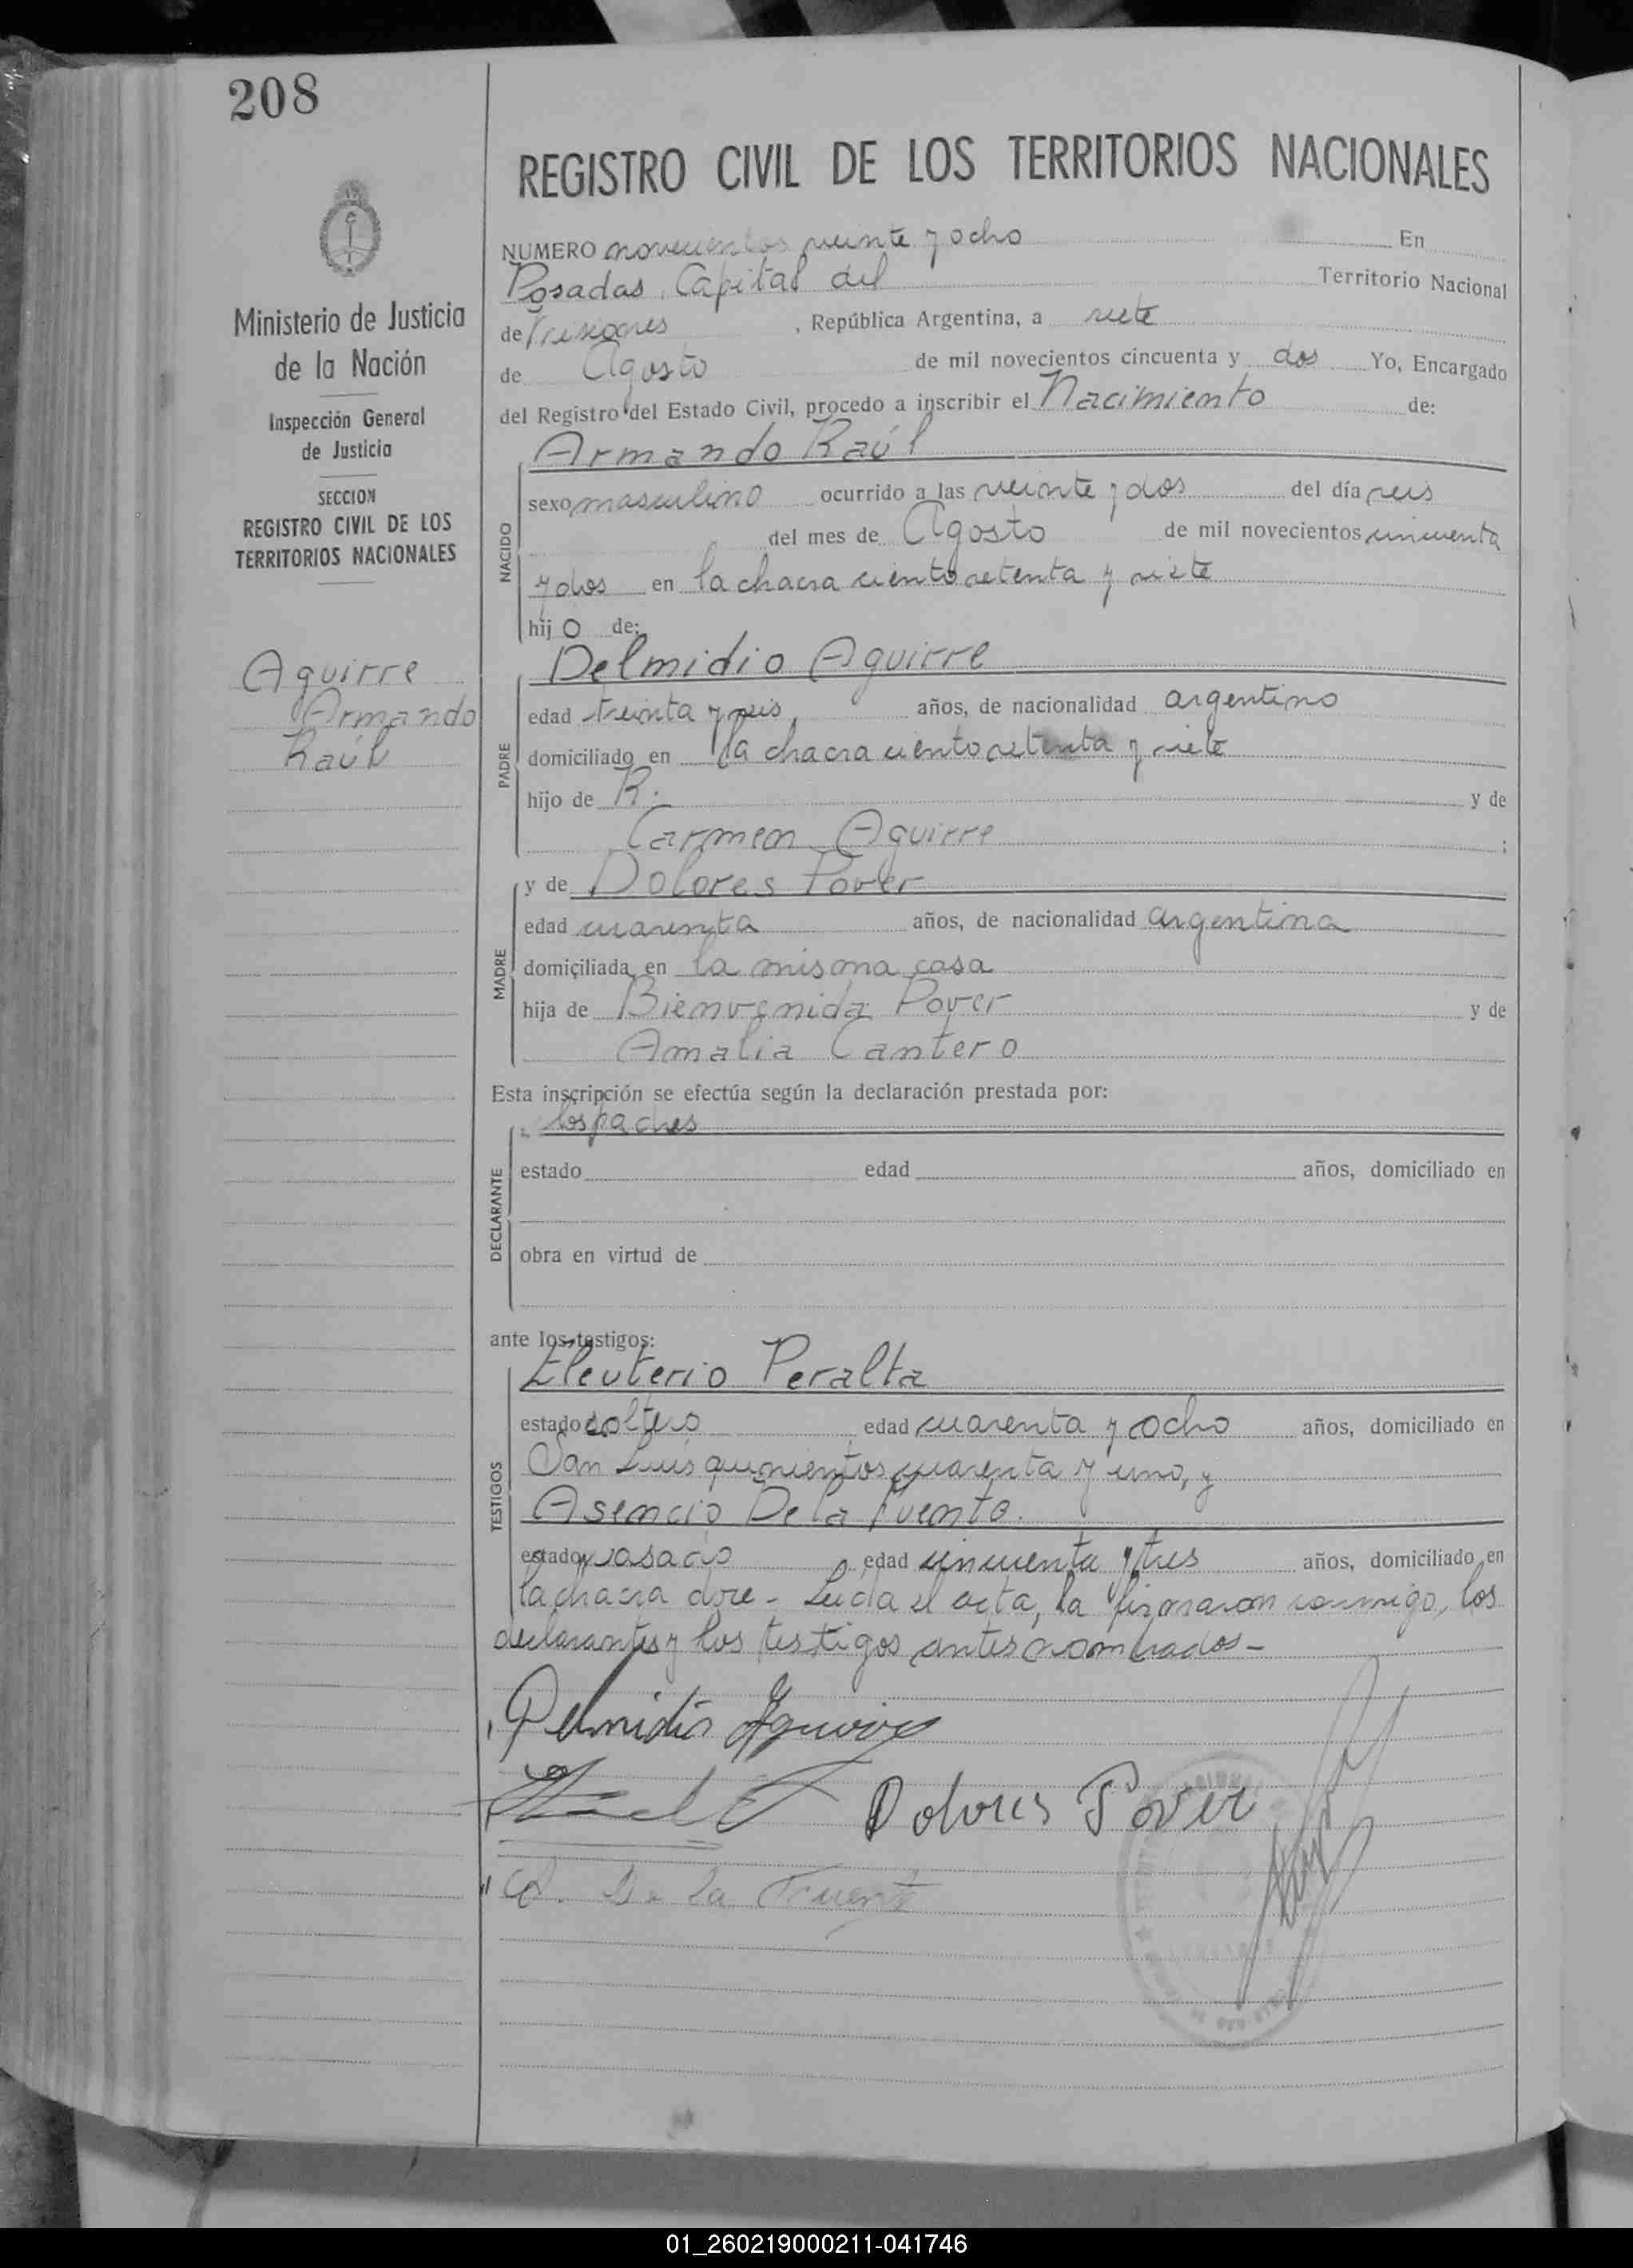 208
REGISTRO CIVIL DE LOS TERRITORIOS NACIONALES
Ministerio de Justicia
de la Nación
Inspección General
de Justicia
SECCION
REGISTRO CIVIL DE LOS
TERRITORIOS NACIONALES
Aguirre
Armando
Raúl
NUMERO novecientos veinte y ocho En
Posadas, Capital del Territorio Nacional
de Misiones, República Argentina, a siete
de Agosto de mil novecientos cincuenta y dos Yo, Encargado
del Registro del Estado Civil, procedo a inscribir el Nacimiento de:
NACIDO
Armando Raúl
sexo masculino ocurrido a las veinte y dos del día seis
del mes de Agosto de mil novecientos cincuenta
y dos en la chacra ciento setenta y siete
hijo de:
PADRE
Delmidio Aguirre
edad treinta y seis, años, de nacionalidad argentino
domiciliado en la chacra ciento setenta y siete
hijo de R. y de
Carmen Aguirre ;
MADRE
y de Dolores Pover
edad cuarenta años, de nacionalidad argentina
domiciliada en la misma casa
hija de Bienvenida Pover y de
Amalia Cantero
Esta inscripción se efectúa según la declaración prestada por:
DECLARANTE
los padres
estado edad años, domiciliado en
obra en virtud de
ante los testigos:
TESTIGOS
Eleuterio Peralta
estado soltero edad cuarenta y ocho años, domiciliado en
San Luis quinientos cuarenta y uno, y
Asencio De la Fuente.
estado casado edad cincuenta y tres años, domiciliado en
la chacra doce - Leida el acta, la firmaron conmigo, los
declarantes y los testigos antes nombrados -
Delmidio Aguirre
Dolores Pover
A. De la Fuente
01_260219000211-041746